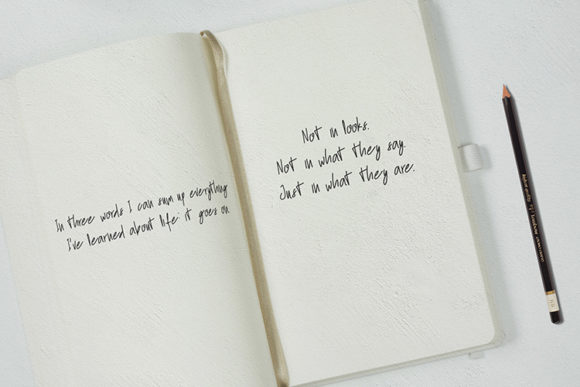 In three words I can sum up everything
I've learned about life: it goes on
Not in looks.
Not in what they say.
Just in what they are.